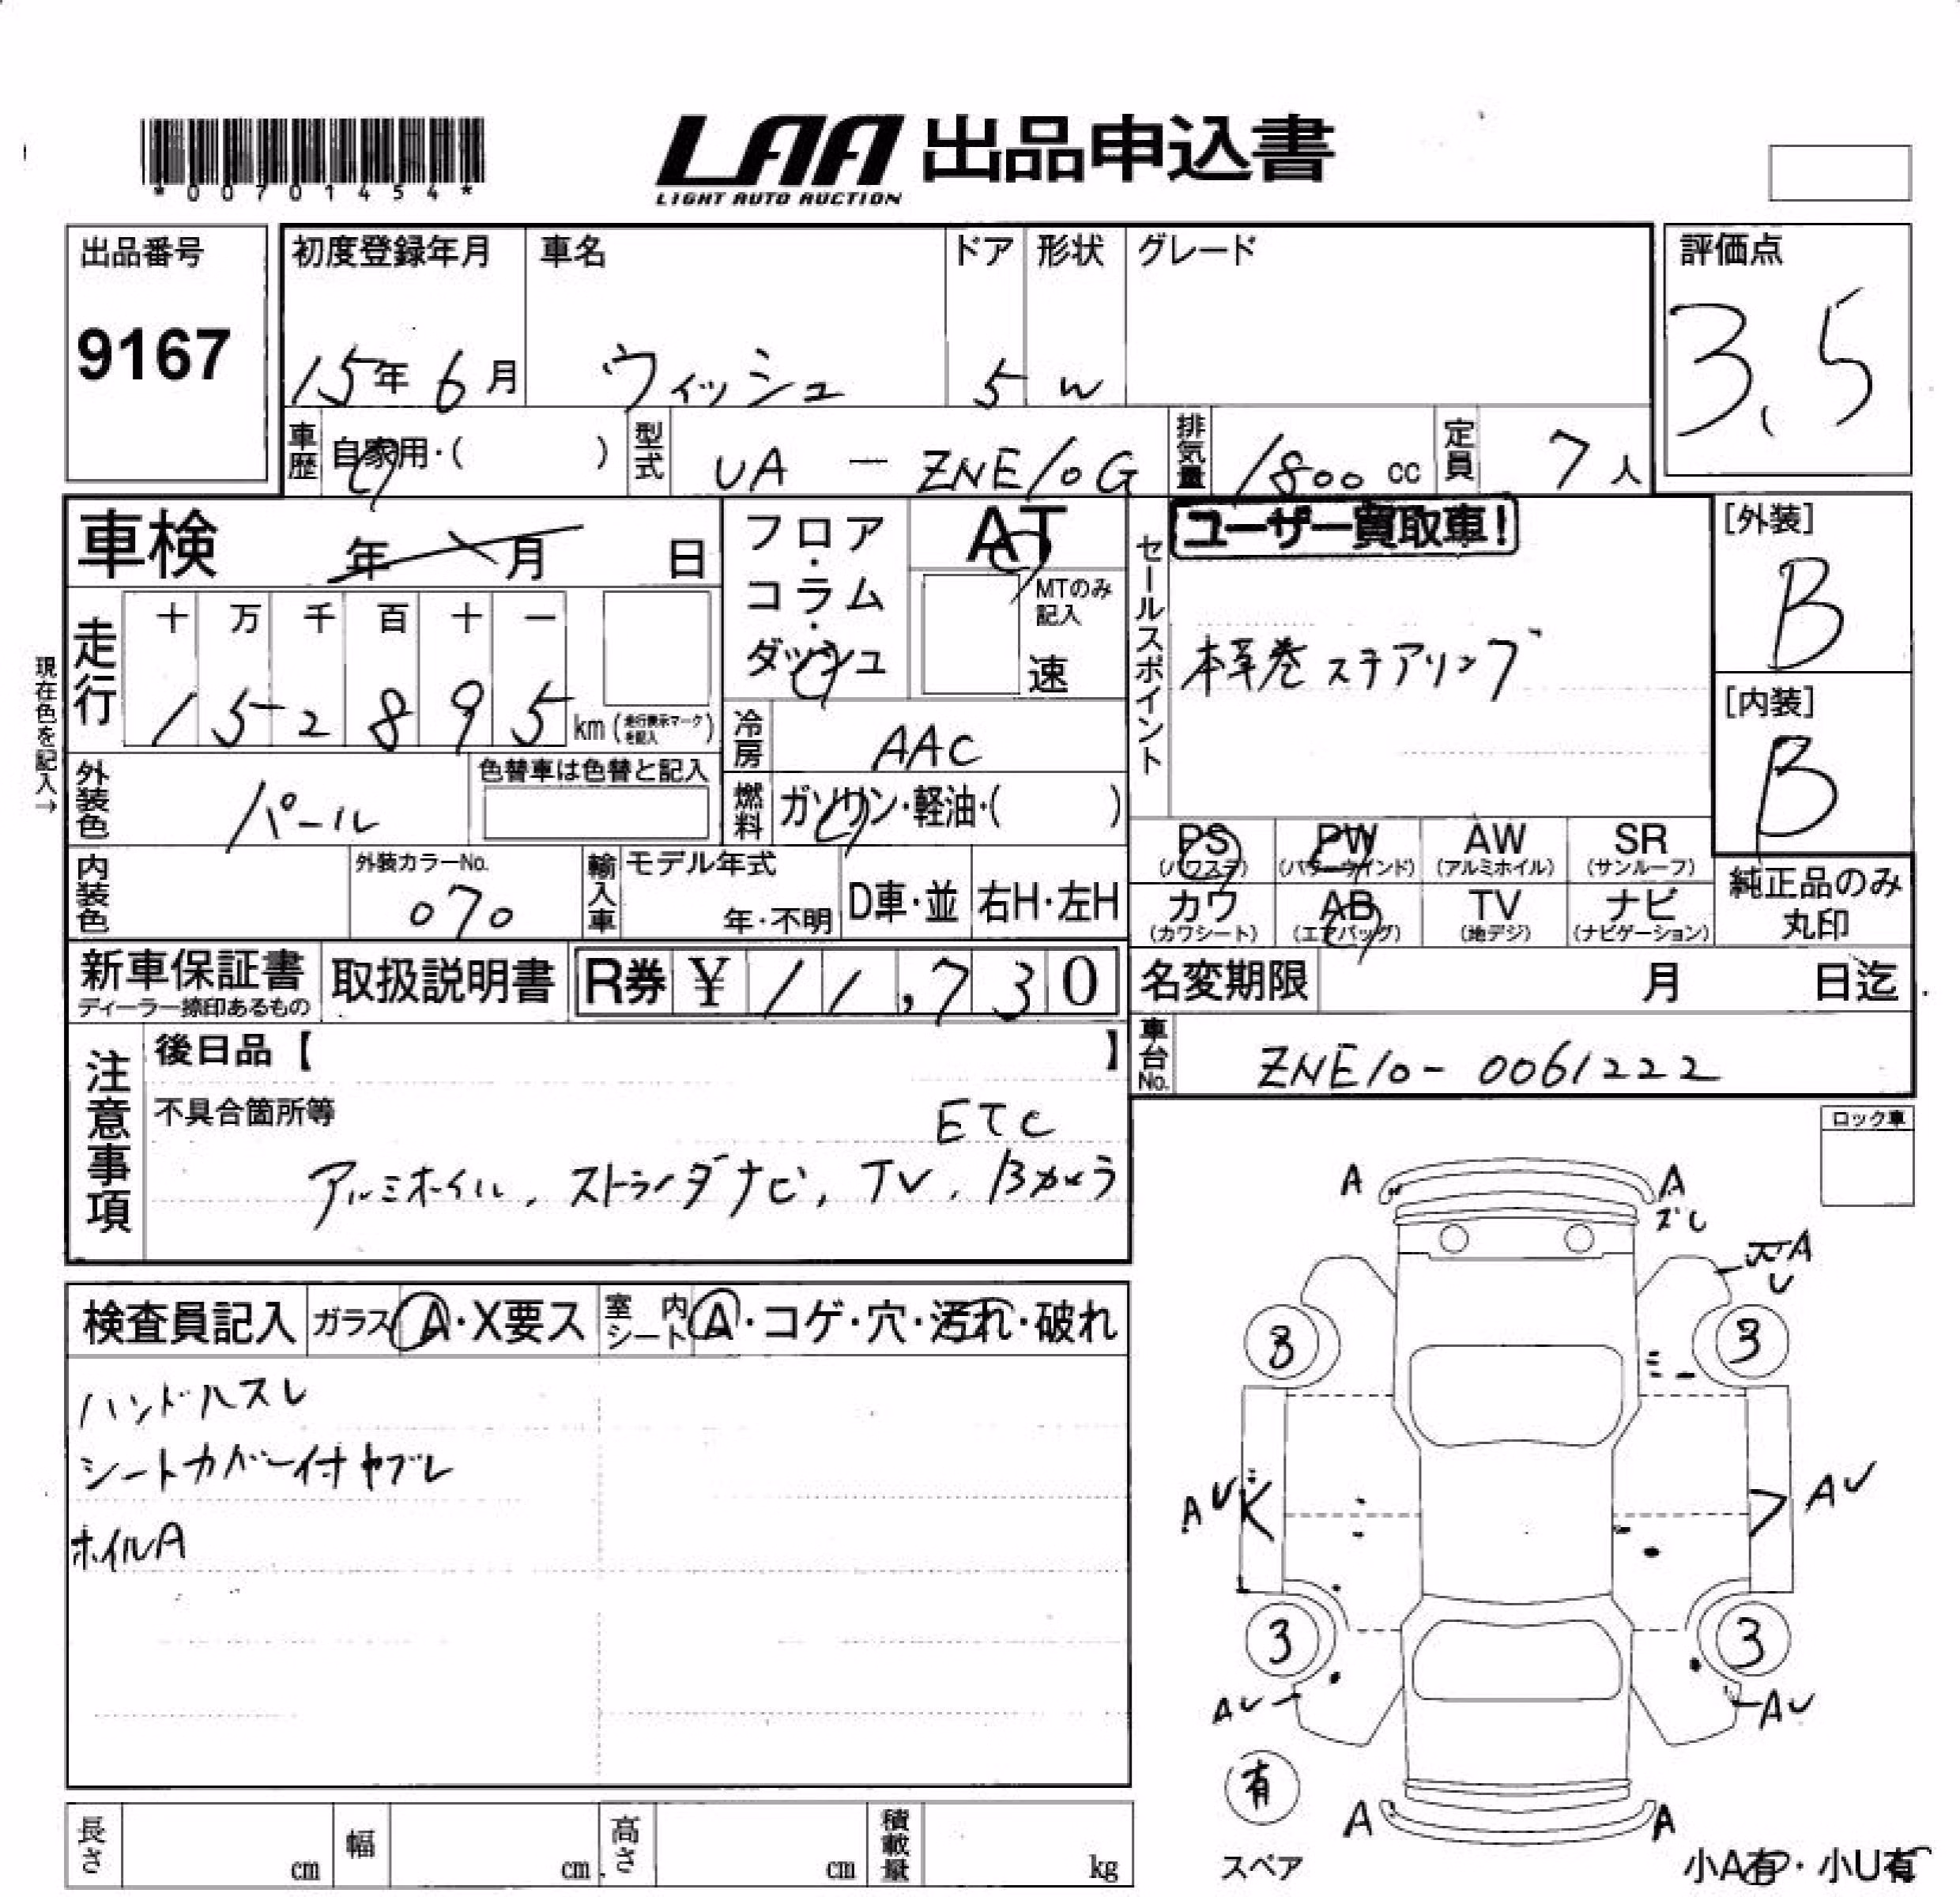 *00701454*
LAA 出品申込書
LIGHT AUTO AUCTION
出品番号
9167
初度登録年月
15年6月
車名
ウィッシュ
ドア
5
形状
W
グレード
評価点
3.5
車歴
自家用・( )
型式
UA - ZNE10G
排気量
1800 cc
定員
7人
車検
年 月 日
フロア・コラム・ダッシュ
AT
MTのみ記入
速
セールスポイント
ユーザー買取車!
本革巻ステアリング
[外装]
B
[内装]
B
現在色を記入→
走行
十 万 千 百 十 一
1 5 2 8 9 5 km (走行表示マークを記入)
冷房
AAC
外装色
パール
色替車は色替と記入
燃料
ガソリン・軽油・( )
PS (パワステ)
PW (パワーウインド)
AW (アルミホイル)
SR (サンルーフ)
内装色
外装カラーNo.
070
輸入車
モデル年式
年・不明
D車・並
右H・左H
カワ (カワシート)
AB (エアバッグ)
TV (地デジ)
ナビ (ナビゲーション)
純正品のみ丸印
新車保証書
ディーラー捺印あるもの
取扱説明書
R券 ¥ 11,730
名変期限
月 日迄
車台No.
ZNE10-0061222
注意事項
後日品【 】
不具合箇所等
ETC
アルミホイル, ストラーダナビ, TV, Bカメラ
ロック車
A A
ズレ
A
U
検査員記入
ガラス A・X要ス
室内シート A・コゲ・穴・汚れ・破れ
ハンドルスレ
シートカバー付ヤブレ
ホイルA
8 3
AU AU
3 3
AU AU
有
スペア
A A
小A有・小U有
長さ cm
幅 cm
高さ cm
積載量 kg